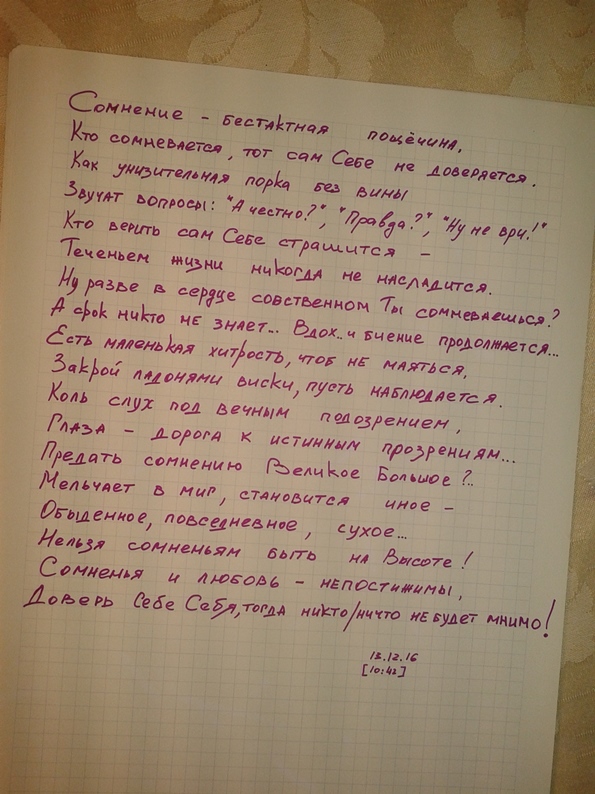 Сомнение - бестактная пощёчина.
Кто сомневается, тот сам Себе не доверяется.
Как унизительная порка без вины
Звучат вопросы: "А честно?", "Правда?", "Ну не ври!"
Кто верить сам Себе страшится -
Теченьем жизни никогда не насладится.
Ну разве в сердце собственном Ты сомневаешься?
А срок никто не знает... Вдох.. и биение продолжается...
Есть маленькая хитрость, чтоб не маяться,
Закрой ладонями виски, пусть наблюдается.
Коль слух под вечным подозрением,
Глаза - дорога к истинным прозрениям...
Предать сомнению Великое Большое?..
Мельчает в миг, становится иное -
Обыденное, повседневное, сухое...
Нельзя сомненьям быть на Высоте!
Сомненья и любовь - непостижимы,
Доверь Себе Себя, тогда никто/ничто не будет мнимо!
13.12.16
[10:42]